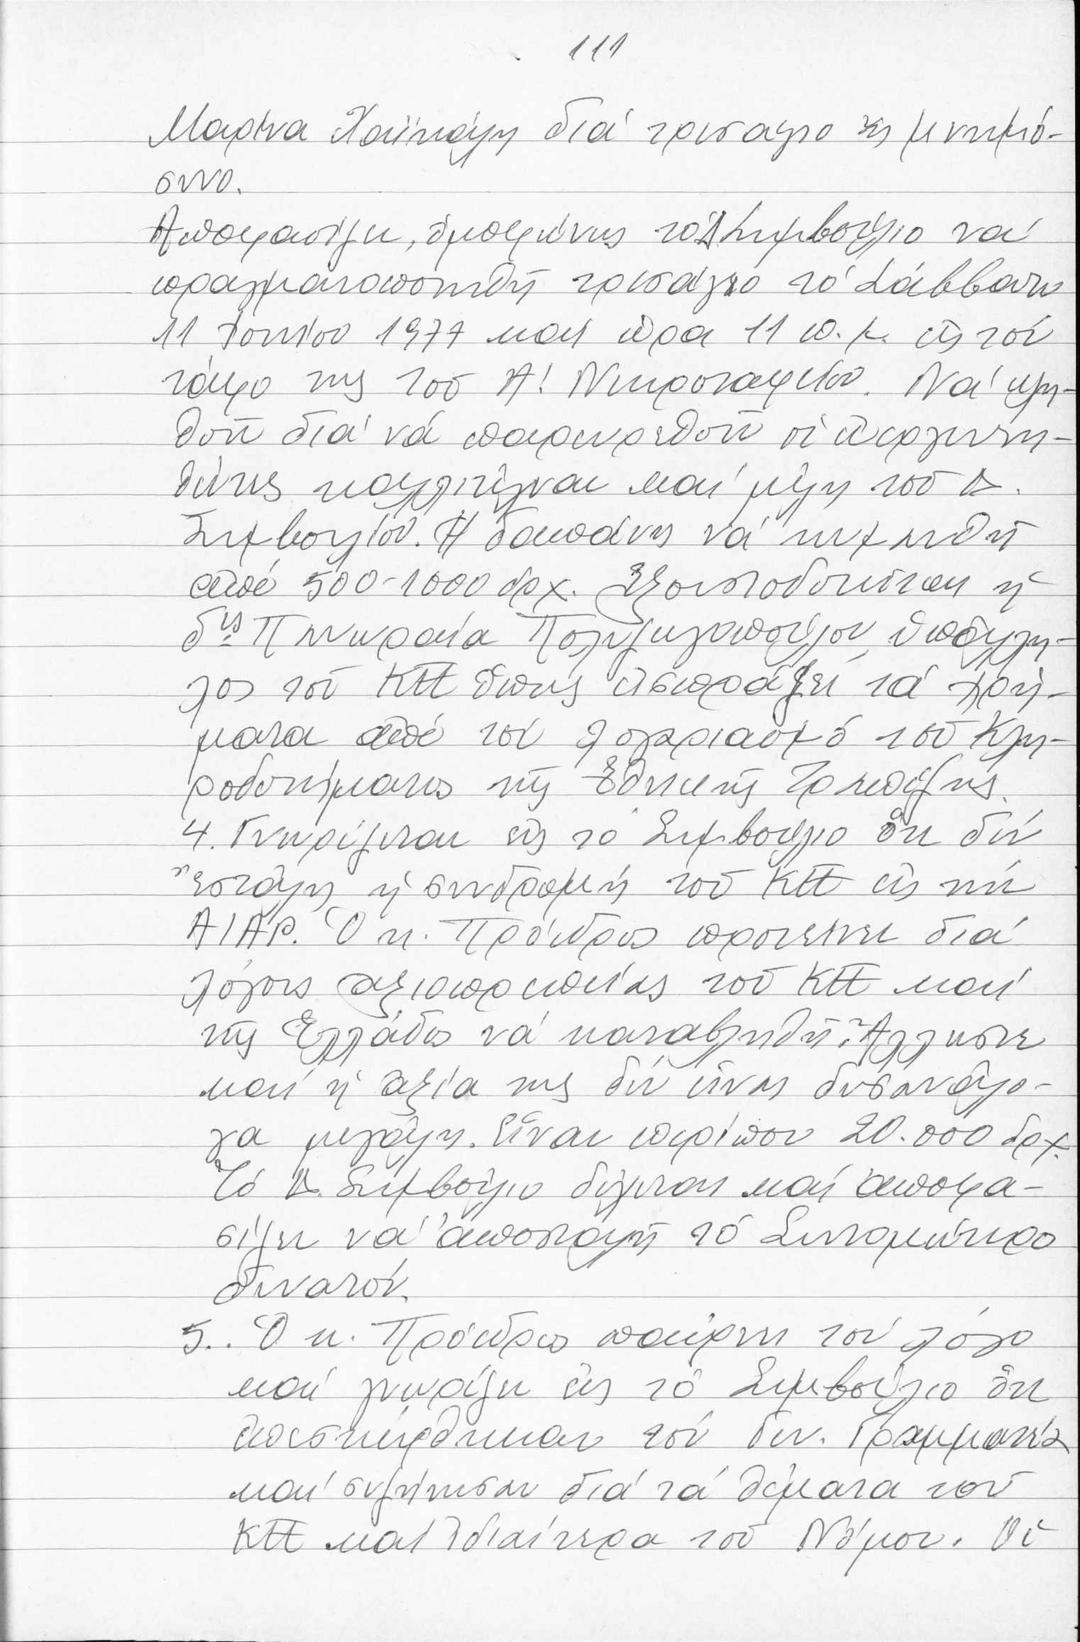 111
Μαρίνα Χαϊκάλη διά τρισάγιο ἤ μνημό-
συνο.
Ἀποφασίζει, ὁμοφώνως τό Δ Συμβούλιο νά
πραγματοποιηθῆ τρισάγιο τό Σάββατο
11 Ἰουνίου 1977 καί ὥρα 11 π.μ. εἰς τόν
τάφο της τοῦ Α! Νεκροταφείου. Νά κλη-
θοῦν διά νά παρευρεθοῦν οἱ
καλλιτέχναι καί μέλη τοῦ Δ.
Συμβουλίου. Ἡ δαπάνη νά κυμανθῆ
ἀπό 500-1000 δρχ. Ἐξουσιοδοτεῖται ἡ
δνίς Πολυζωγοπούλου ὑπάλλη-
λος τοῦ ΚΠΕ ὅπως εἰσπράξει τά χρή-
ματα ἀπό τόν λογαριασμό τοῦ Κλη-
ροδοτήματος τῆς Ἐθνικῆς Τραπέζης.
4. Γνωρίζεται εἰς τό Συμβούλιο ὅτι δέν
ἐστάλη ἡ συνδρομή τοῦ ΚΠΕ εἰς τήν
ΑΙΑΡ. Ὁ κ. Πρόεδρος προτείνει διά
λόγους ἀξιοπρεπείας τοῦ ΚΠΕ καί
τῆς Ἑλλάδος νά καταβληθῆ. Ἄλλωστε
καί ἡ ἀξία της δέν εἶναι δυσανάλο-
γα μεγάλη. Εἶναι περίπου 20.000 δρχ.
Τό Δ. Συμβούλιο δέχεται καί ἀποφα-
σίζει νά ἀποσταλῆ τό Συντομώτερο
δυνατόν.
5.. Ὁ κ. Πρόεδρος παίρνει τόν λόγο
καί γνωρίζει εἰς τό Συμβούλιο ὅτι
ἐπεσκέφθηκαν τόν Γεν. Γραμματέα
καί συζήτησαν διά τά θέματα τοῦ
ΚΠΕ καί ἰδιαίτερα τοῦ Νόμου. Οἱ